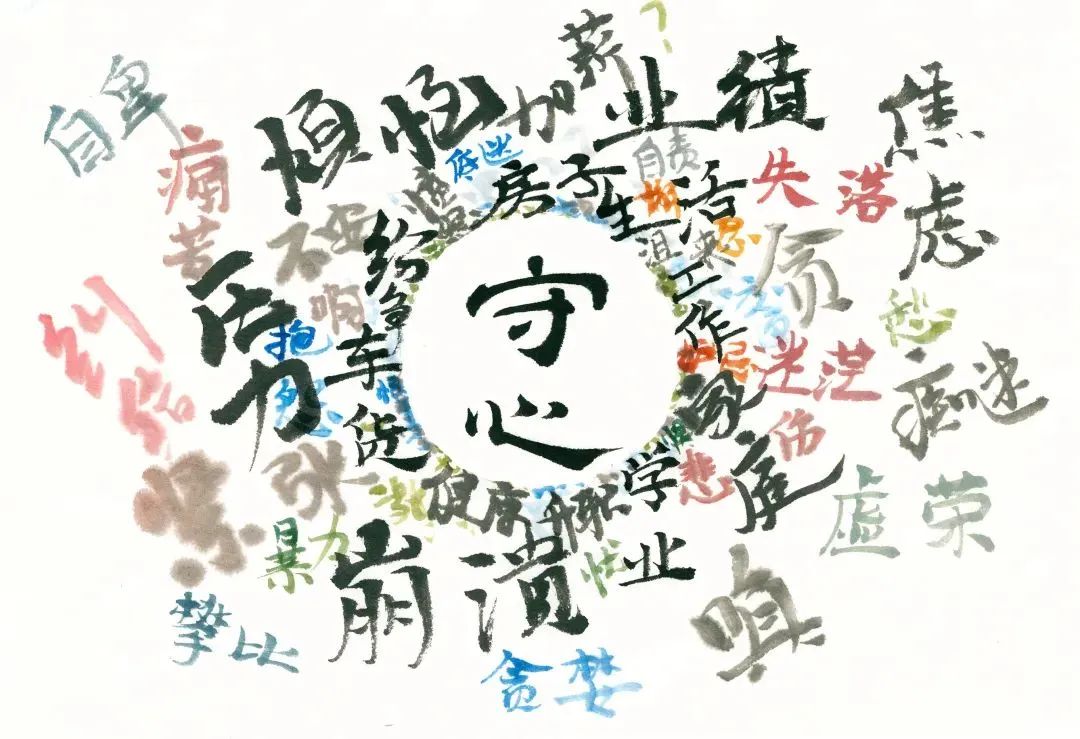 加薪
？
自卑
烦恼
业绩
焦虑
低迷
自责
痛苦
房子
生活
失落
不安
纷争
沮丧
工作
贪
压力
守心
愁
纠结
抱怨
车贷
迷茫
痴迷
家庭
伤
紧张
健康
升职
学业
悲
虚荣
暴力
崩溃
忧
嗔
攀比
贪婪